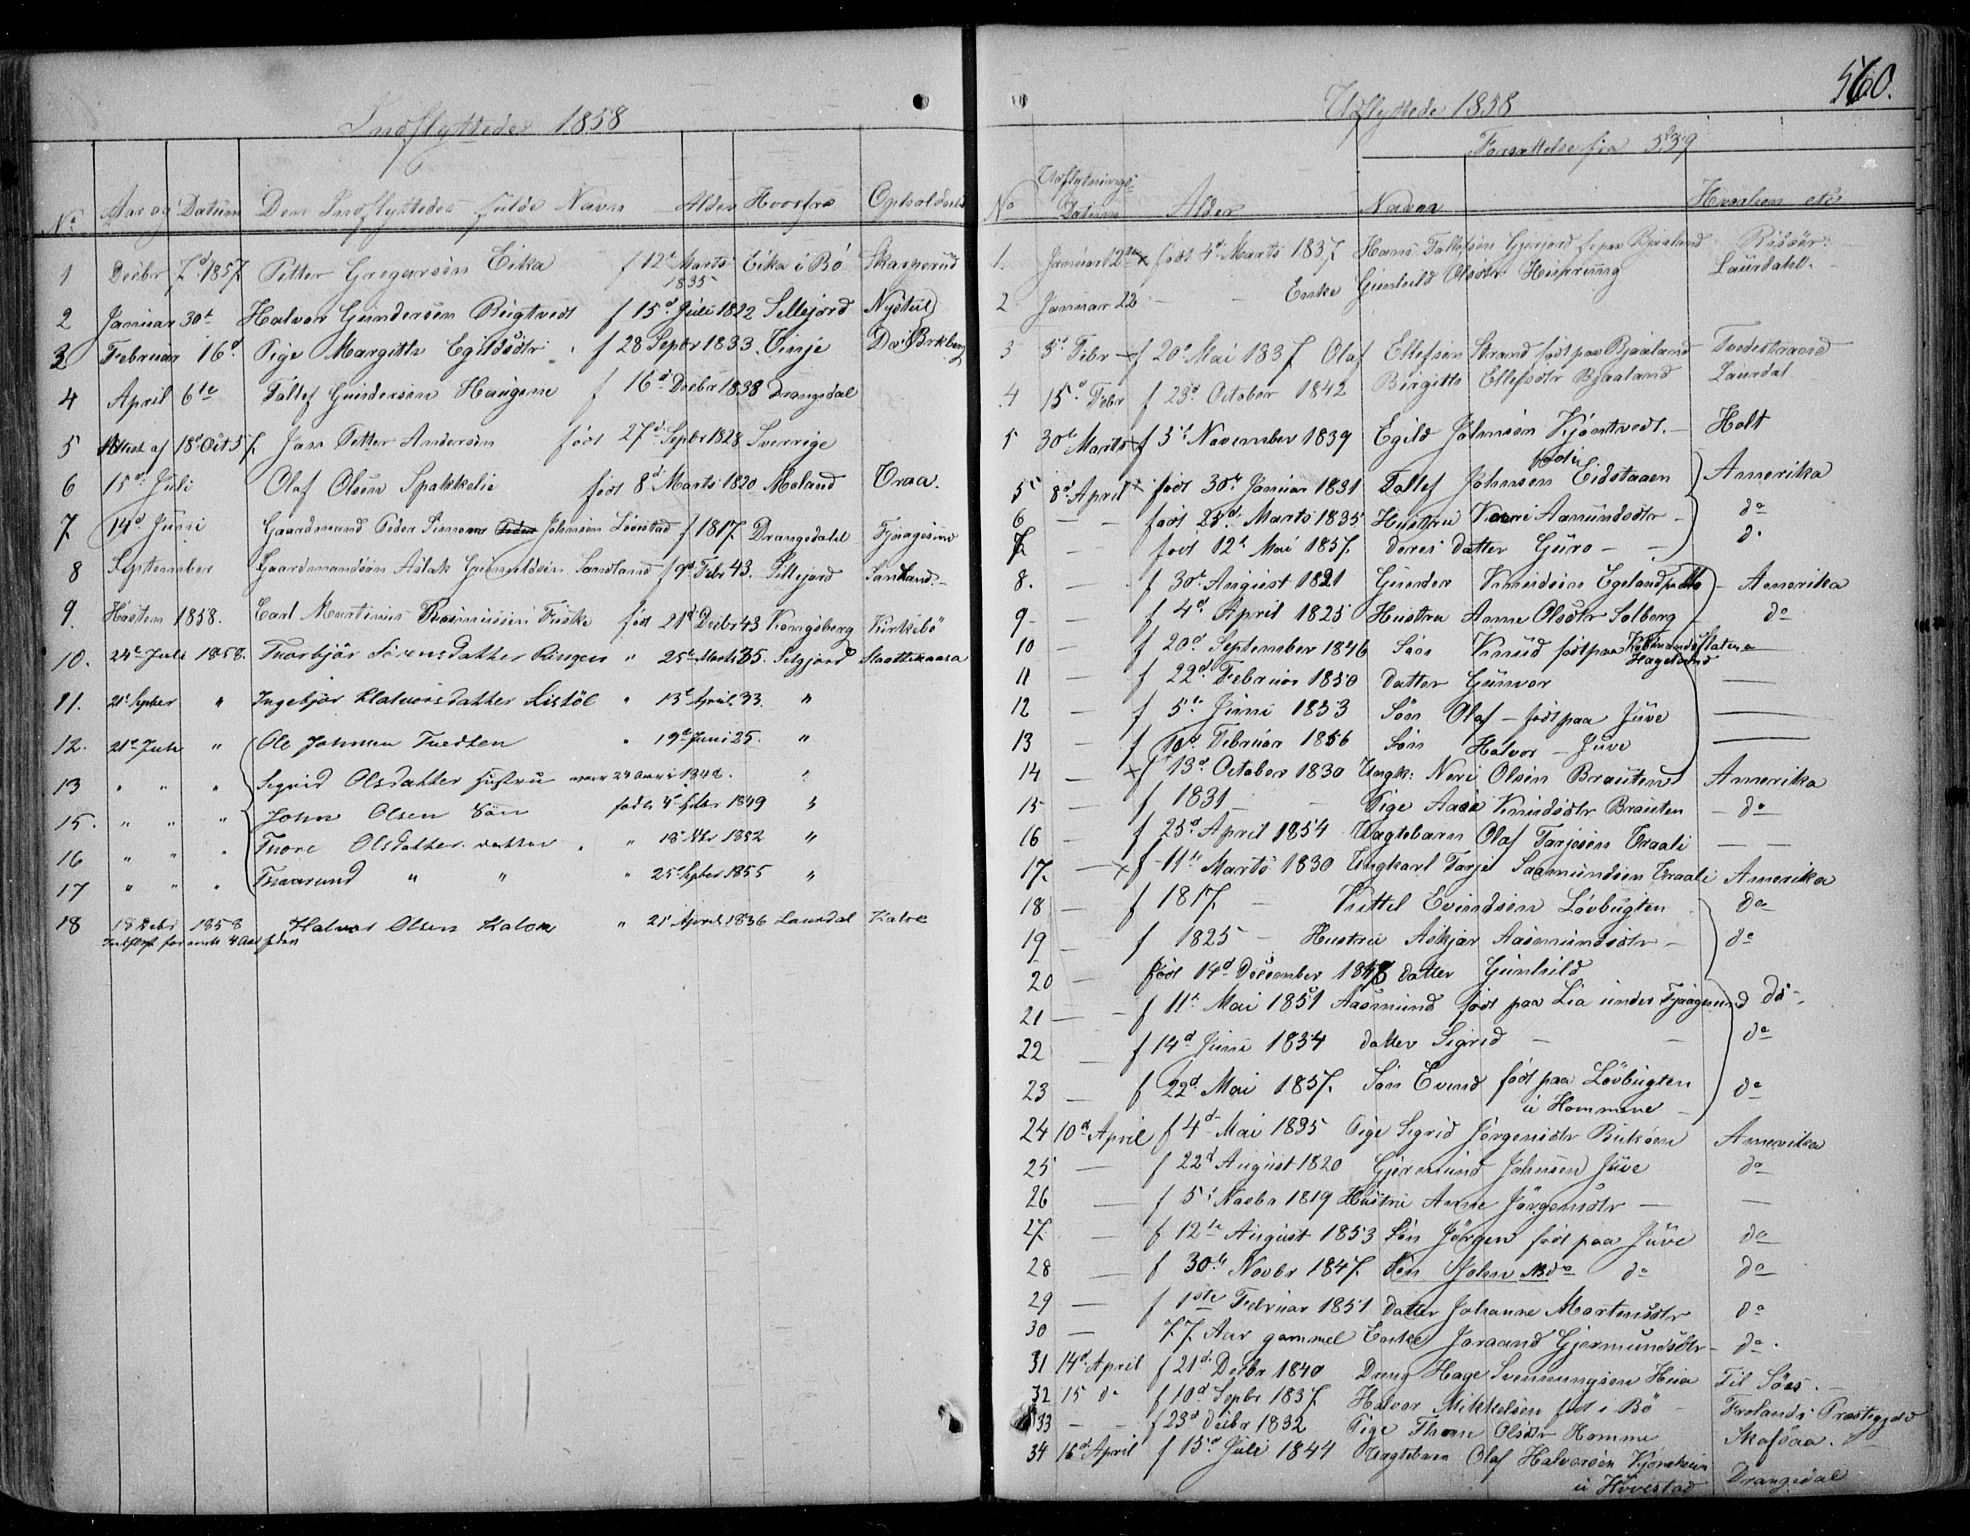 Indflyttede 1858
No Aar og Datum Den Indflyttedes fulde Navn Alder Hvorfra Opholdssted
1 Decbr 7d 1857 Petter Gregersen Eika f 12t Marts 1835 Eika i Bö Skasperud
2 Januar 30t Halvor Gundersen Rugtvedt f 15d Juli 1822 Sillejord Nystul
3 Februar 16d Pige Margithe Egildsdtr f 28 Septbr 1833 Vinje Do
4 April 6te Tallef Gundersen Haugene f 16d Decbr 1838 Drangedal
5 Attest af 18d Oct 57. Jan Petter Andersen född 27d Septbr 1828 Sverrige
6 15d Juli Olaf Olsen Spakkelie född 8d Marts 1820 Moland Traa.
7 14d Juni Gaardmand Peder Simons Johnsen Lönstad f 1817. Drangedahl Fjaagesund
8 September Gaardmandsön Aslak Gunuldsen Sandland f 9d Febr 43. Sillejord Sandland
9. Hösten 1858. Carl Martinius Rasmussen Friske född 21d Decbr 43 Kongsberg Kirkebö
10. 24de Juli 1858. Thorbjör Sörensdatter Ringen " 25t Marts 35. Selgjord Staattskaasa
11. 21 Septber " Ingebjör Halvorsdatter Listöl " 13t April 33. "
12. 21de Juli " Ole Johnsen Tvedten " 19d Juni 25. "
13 " " " Sigrid Olsdatter Hustru var 24 Aar i 1848. "
15. " " " John Olsen Sön födt 4de Febr 1849 "
16 " " " Thore Olsdatter datter " 18de 1852 "
17 " " " Thaarund " " " 25de Septber 1855 "
18 18 Debr 1858 Halvor Olsen Kalvo " 21 April 1836 Laurdal Kalvo
Indflyt for omtr 4 Aar siden
560.
Udflyttede 1858
Forsættelse fra 539
No Udflytnings Datum Alder Navn Hvorhen etc
1. Januar 12te × född 4d Marts 1837 Hans Tallefsen Gjerjord f. paa Bjaaland Risöer
2 Januar 22 — — Enke Gunhild Olsdtr Heipreung Laurdahl.
3 5t Febr f 20d Mai 1837. Olaf Ellefsen Strand född paa Bjaaland Tvedestrand
4 15d Febr f 23d October 1842 Birgitte Ellefsdtr Bjaaland Laurdal
5 30te Marts f 3d November 1839 Egild Johnsen Kjöntvedt. Holt
5 8d April × född 30te Januar 1831 Tallef Johnsen Eidstaaen Amerika
6 — — född 25d Marts 1835 Hustru Kari Aamundsdtr do
7 — född 12t Mai 1857. deres datter Guro — — do
8. — f 30te August 1821 Gunder Knudsen Egeland Amerika
9 — f 4d April 1825 Hustru Anne Olsdtr Solberg do
10 — f 20d September 1846 Sön Knud född paa
11 — f 22d Februar 1850 datter Gunvor —
12 — f 5te Juni 1853 Sön Olaf — född paa Juve —
13 — f 10d Februar 1856 Sön Halvor — Juve —
14 — × f 13d October 1830 Ungk: Neri Olsen Brauten Amerika
15 — f 1831 — — Pige Aase Knudsdtr Brauten do
16 — f 25d April 1854 Uægtebarn Olaf Tarjesen Traali — —
17. — × f 11te Marts 1830 Ungkarl Tarje Saamundsen Traali Amerika
18 — f 1817. — Kittel Evindsen Lövbugten do
19 — f 1825 — Hustru Askjær Aasmundsdtr — do
20 — född 14d December 1848 datter Gunhild
21 — f 11te Mai 1851 Aasmund född paa Lia under Fjaagesund do
22 — f 14d Juni 1854 datter Sigrid — — do
23 — f 22d Mai 1857. Sön Evend född paa Lövbugten do
u Homme
24 10d April f 4d Mai 1835 Pige Sigrid Jörgensdtr Buköen Amerika
25 — f 22d August 1820 Gjermund Johnsen Juve do
26 — f 5t Novbr 1819 Hustru Anne Jörgensdtr — —
27. — f 12te August 1853 Sön Jörgen född paa Juve do
28 — f 30te Novbr 1847. Sön John do do do
29 — f 1ste Februar 1851 datter Johanne Mortensdtr do
30 — 77 Aar gammel Enke Joraand Gjermundsdtr do
31 14d April f 21d Decbr 1840 Dreng Hage Svennungsen Heia Til Söes.
32 15 do f 10d Septbr 1837. Halvor Mikkelsen född i Bö Frolands Præstegjeld
33 — — f 23d Decbr 1832 Pige Thone Olsdtr Homme Skafsaa.
34 16d April f 15d Juli 1844 Uægtebarn Olaf Halvorsen Kjönsheim
u Hovestad Drangedal